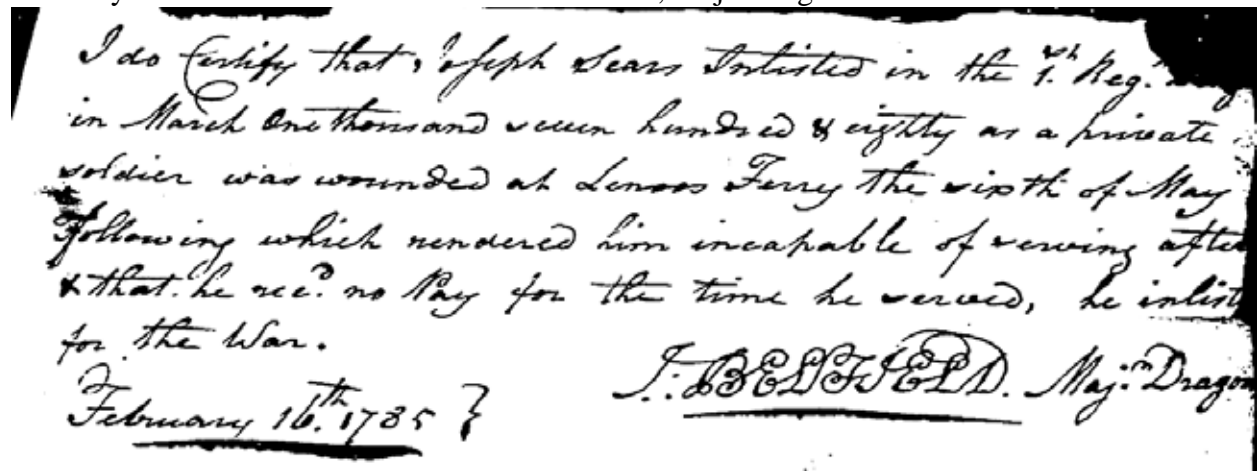 I do Certify that Joseph Sears Inlisted in the 1.st Reg.t
in March One thousand seven hundred & eighty as a private
soldier was wounded at Lenoos Ferry the sixth of May
following which rendered him incapable of serving after
& that he rec.d no Pay for the time he served, he inlist
for the War.
J. BELFIELD. Maj.r Dragon
February 16.th 1785 }